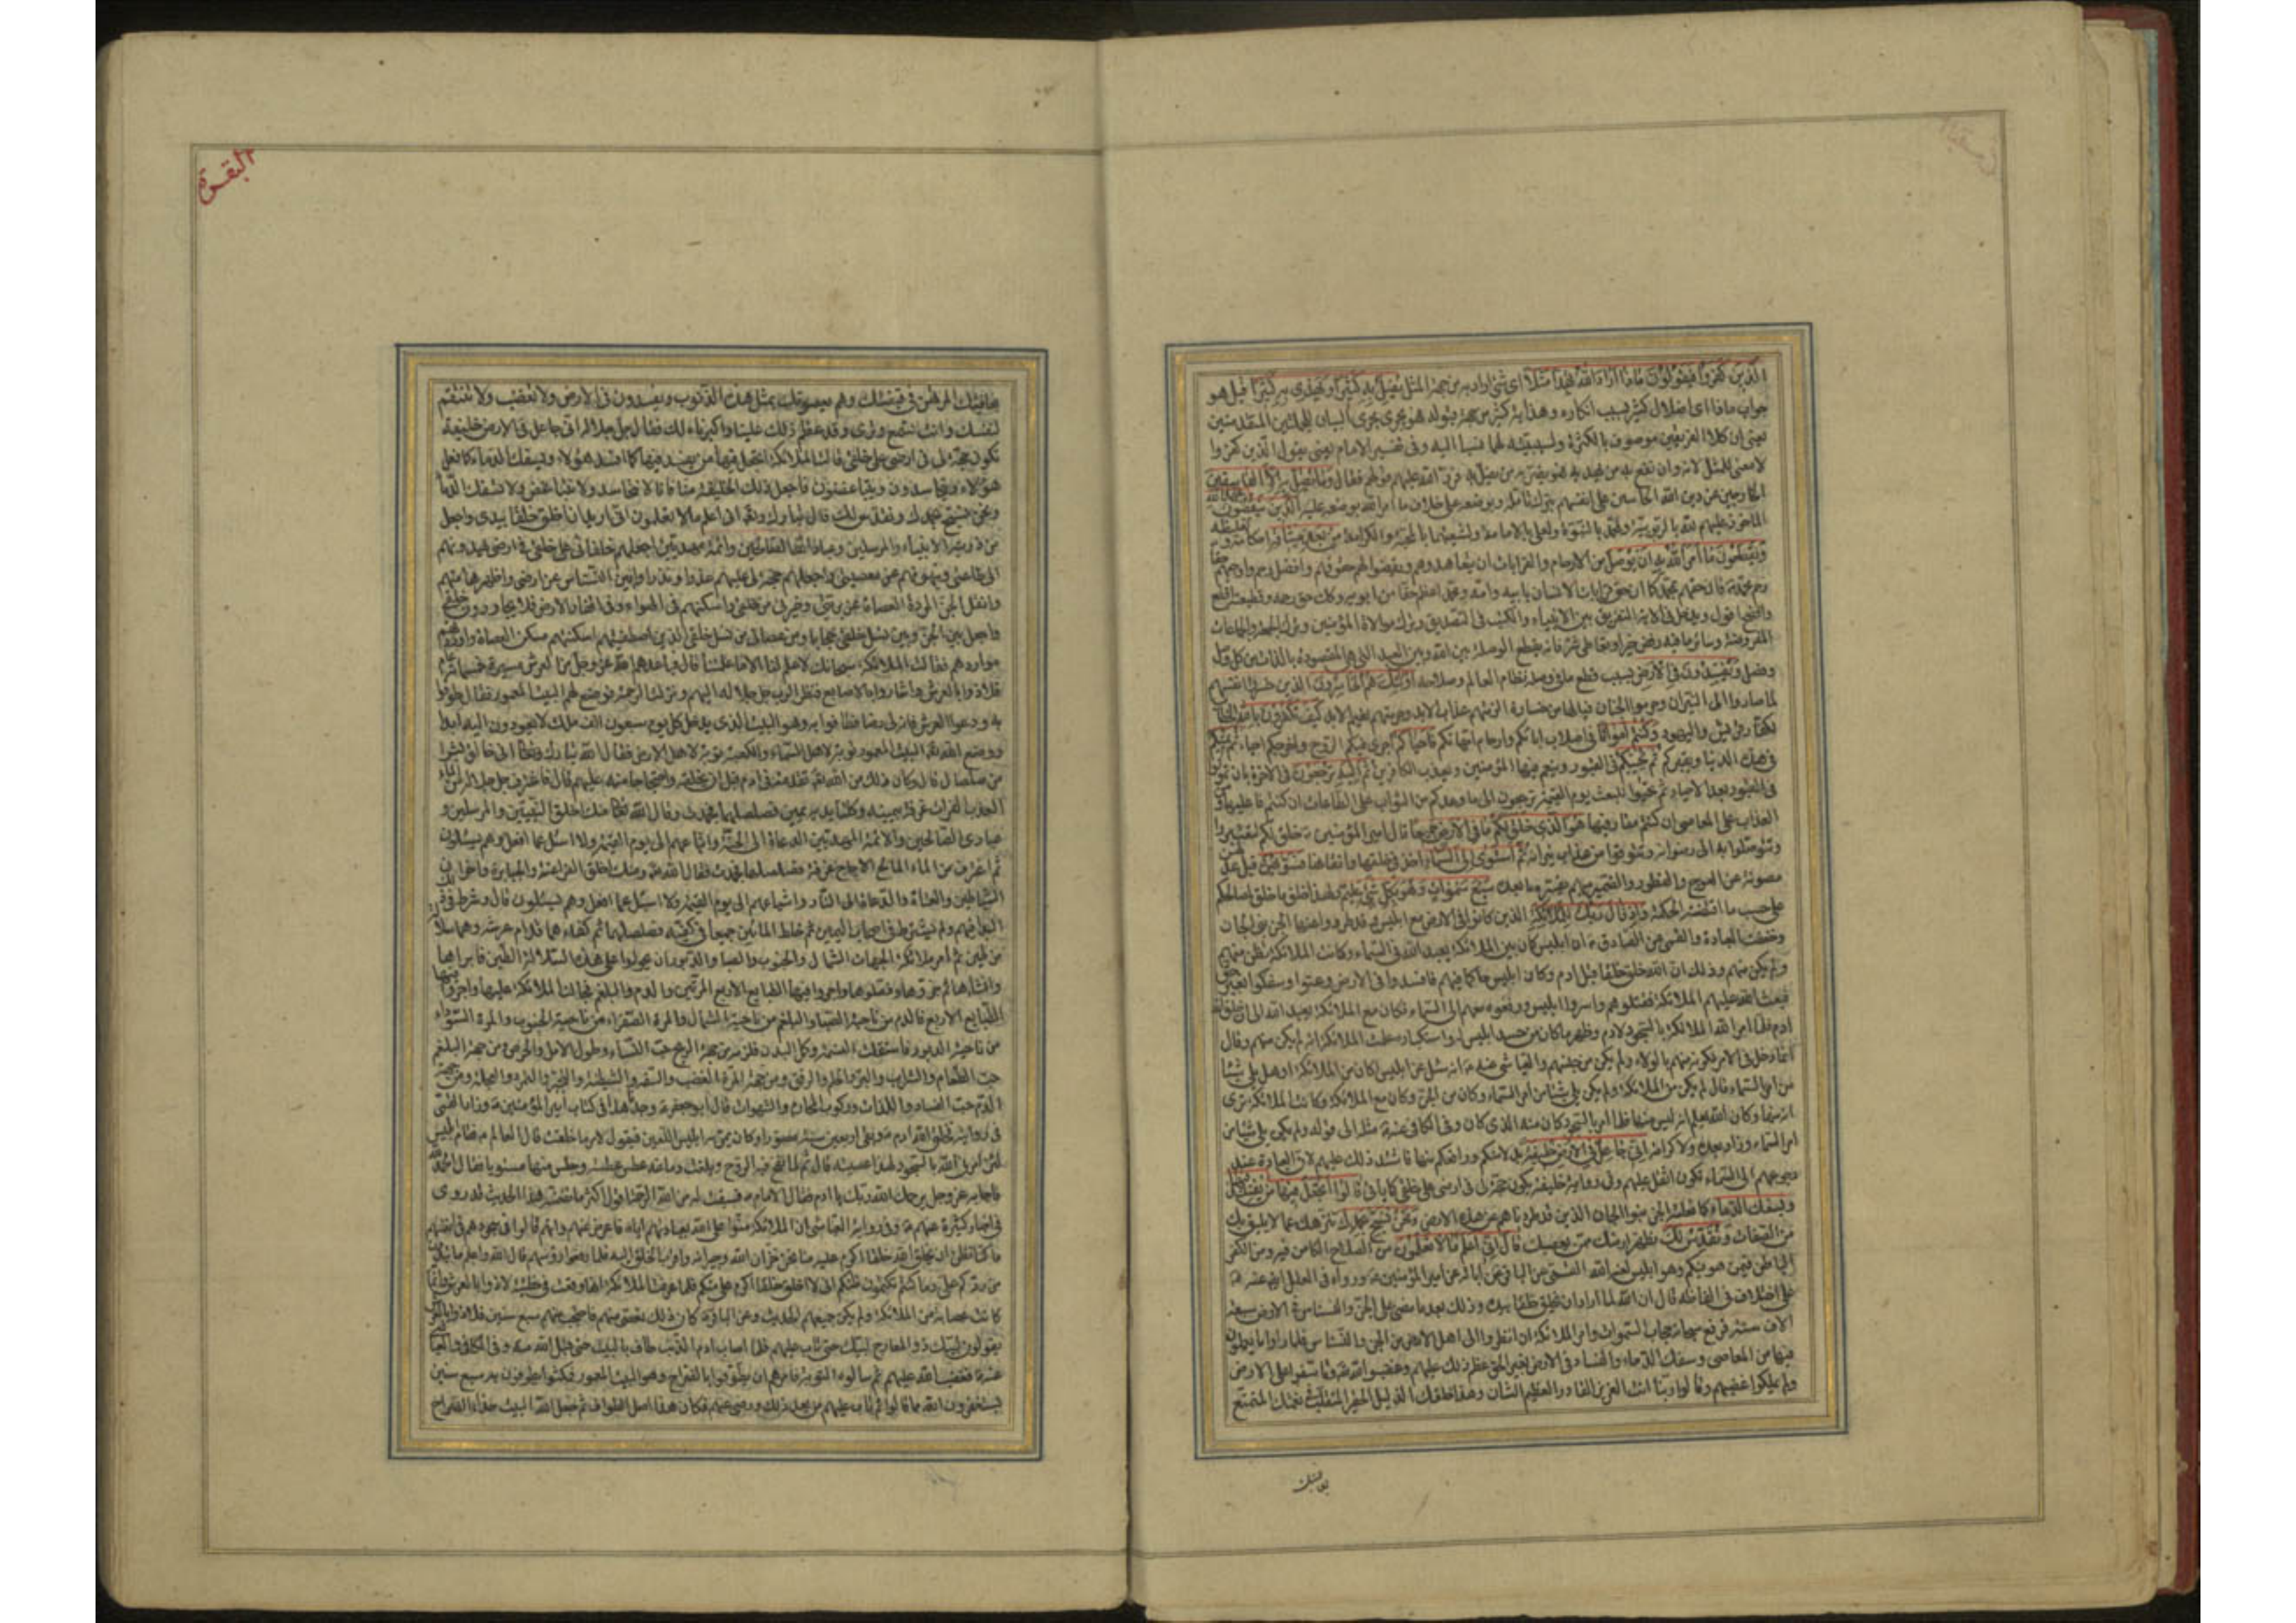 الذين كفروا فيقولون ماذا اراد الله بهذا مثلا اي شئ اراد به من جهة المثل يضل به كثيرا ويهدي به كثيرا قيل هو
جواب ماذا اي اضلال كثير بسبب انكاره وهداية كثير من جهة قبوله فهو يجري مجرى البيان للجملتين المتقدمتين
يعني ان كلا الفريقين موصوف بالكثرة ولسببيته لهما نسبا اليه وفي تفسير الامام يعني يقول الذين كفروا
لا معنى للمثل لانه وان نفع به من يهديه فهو يضر به من يضله به فرد الله عليهم قولهم فقال وما يضل به الا الفاسقين
الخارجين عن دين الله الجانين على انفسهم بترك تأمله وبوضعه على خلاف ما امر الله بوضعه عليه الذين ينقضون عهد الله
الماخوذ عليهم لله بالربوبية ولمحمد بالنبوة ولعلي بالامامة ولشيعتهما بالمحبة والكرامة من بعد ميثاقه احكامه وتغليظه
ويقطعون ما امر الله به ان يوصل من الارحام والقرابات ان يتعاهدوهم ويقضوا حقوقهم وافضل رحم واوجبهم حقا
رحم محمد فان حقهم بمحمد كما ان حق قرابات الانسان بابيه وامه ومحمد اعظم حقا من ابويه وكذلك حق رحمه وقطيعته اقطع
وافضح اقول ويدخل في الاية التفريق بين الانبياء والكتب في التصديق وترك موالاة المؤمنين وترك الجمعة والجماعات
المفروضة وسائر ما فيه رفض خير او تعاطي شر فانه يقطع الوصلة بين الله وبين العبد التي هي المقصودة بالذات من كل وصل
وفصل ويفسدون في الارض بسبب قطع ما في وصله نظام العالم وصلاحه اولئك هم الخاسرون الذين خسروا انفسهم
لما صاروا الى النيران وحرموا الجنان فيالها من خسارة الزمتهم عذاب الابد وحرمتهم نعيم الابد كيف تكفرون بالله الخطاب
لكفار قريش واليهود وكنتم امواتا في اصلاب ابائكم وارحام امهاتكم فاحياكم اجرى فيكم الروح واخرجكم احياء ثم يميتكم
في هذه الدنيا ويقبركم ثم يحييكم في القبور وينعم فيها المؤمنين ويعذب الكافرين ثم اليه ترجعون في الاخرة بان تموتوا
في القبور بعد الاحياء ثم تحيوا للبعث يوم القيمة ترجعون الى ما وعدكم من الثواب على الطاعات ان كنتم فاعليها ومن
العقاب على المعاصي ان كنتم مقارفيها هو الذي خلق لكم ما في الارض جميعا قال امير المؤمنين خلق لكم لتعتبروا
وتتوصلوا به الى رضوانه وتتوقوا من عذاب نيرانه ثم استوى الى السماء اخذ في خلقها واتقانها فسويهن قيل عدلهن
مصونة عن العوج والفطور والضمير مبهم يفسره ما بعده سبع سموات وهو بكل شئ عليم فلهذا خلق ما خلق لمصالحكم
على حسب ما اقتضته الحكمة واذ قال ربك للملائكة الذين كانوا في الارض مع ابليس وقد طردوا عنها الجن بني الجان
وخفت العبادة والقمي عن الصادق ان ابليس كان بين الملائكة يعبد الله في السماء وكانت الملائكة تظن منهم
ولم يكن منهم وذلك ان الله خلق خلقا قبل ادم وكان ابليس حاكما فيهم فافسدوا في الارض وعتوا وسفكوا بغير حق
فبعث الله عليهم الملائكة فقتلوهم واسروا ابليس ورفعوه معهم الى السماء فكان مع الملائكة يعبد الله الى ان خلق الله
ادم فلما امر الله الملائكة بالسجود لادم وظهر ما كان من حسد ابليس له واستكباره علمت الملائكة انه لم يكن منهم وقال
انما دخل في الامر لكونه منهم بالولاء ولم يكن من جنسهم والعياشي عنه انه سئل عن ابليس اكان من الملائكة او هل يلي شيئا
من امر السماء قال لم يكن من الملائكة ولم يكن يلي شيئا من امر السماء وكان من الجن وكان مع الملائكة وكانت الملائكة ترى
انه منها وكان الله يعلم انه ليس منها فلما امر بالسجود كان منه الذي كان وفي الكافي عنه مثله الى قوله ولم يكن يلي شيئا من
امر السماء وزاد بعده ولا كرامة اني جاعل في الارض خليفة بدلا منكم ورافعكم منها فاشتد ذلك عليهم لان العبادة عند
رجوعهم الى السماء تكون اثقل عليهم وفي رواية خليفة يكون حجة لي في ارضي على خلقي كما ياتي قالوا اتجعل فيها من يفسد فيها
ويسفك الدماء كما فعلته الجن بنوا الجان الذين قد طردناهم عن هذه الارض ونحن نسبح بحمدك ننزهك عما لا يليق بك
من الصفات ونقدس لك نطهر ارضك ممن يعصيك قال اني اعلم ما لا تعلمون من الصلاح الكامن فيه ومن الكفر
الباطن فيمن هو فيكم وهو ابليس لعنه الله القمي عن الباقر عن ابائه عن امير المؤمنين ورواه في العلل ايضا عنه
على اختلاف في الفاظه قال ان الله لما اراد ان يخلق خلقا بيده وذلك بعد ما مضى على الجن والنسناس في الارض سبعة
الاف سنة فرفع سبحانه حجاب السموات وامر الملائكة ان انظروا الى اهل الارض من الجن والنسناس فلما راوا ما يعملون
فيها من المعاصي وسفك الدماء والفساد في الارض بغير الحق عظم ذلك عليهم وغضبوا لله وتاسفوا على الارض
ولم يملكوا غضبهم وقالوا ربنا انت العزيز القادر العظيم الشان وهذا خلقك الذليل الحقير المتقلب في نعمتك المتمتع
بعافيتك
البقرة
بعافيتك المرتهن في قبضتك وهم يعصونك بمثل هذه الذنوب ويفسدون في الارض ولا تغضب ولا تنتقم
لنفسك وانت تسمع وترى وقد عظم ذلك علينا واكبرناه لك فقال جل جلاله اني جاعل في الارض خليفة
تكون حجة لي في ارضي على خلقي قالت الملائكة اتجعل فيها من يفسد فيها كما افسد هؤلاء ويسفك الدماء كما فعل
هؤلاء ويتحاسدون ويتباغضون فاجعل ذلك الخليفة منا فانا لا نتحاسد ولا نتباغض ولا نسفك الدماء
ونحن نسبح بحمدك ونقدس لك قال تبارك وتعالى اني اعلم ما لا تعلمون اني اريد ان اخلق خلقا بيدي واجعل
من ذريته الانبياء والمرسلين وعبادا الله الصالحين وائمة مهديين اجعلهم خلفائي على خلقي في ارضي يهدونهم
الى طاعتي وينهونهم عن معصيتي واجعلهم حجة لي عليهم عذرا ونذرا وابين النسناس عن ارضي واطهرها منهم
وانقل الجن المردة العصاة عن بريتي وخيرتي من خلقي واسكنهم في الهواء وفي اقطار الارض فلا يجاورون خلقي
واجعل بين الجن وبين نسل خلقي حجابا ومن عصاني من نسل خلقي الذين اصطفيتهم اسكنتهم مسكن العصاة واوردتهم
مواردهم فقالت الملائكة سبحانك لا علم لنا الا ما علمتنا قال فباعدهم الله عز وجل من العرش مسيرة خمسمائة عام
فلاذوا بالعرش واشاروا بالاصابع فنظر الرب جل جلاله اليهم ونزلت الرحمة فوضع لهم البيت المعمور فقال طوفوا
به ودعوا العرش فانه لي رضا فطافوا به وهو البيت الذي يدخله كل يوم سبعون الف ملك لا يعودون اليه ابدا
ووضع الله البيت المعمور توبة لاهل السماء والكعبة توبة لاهل الارض فقال الله تبارك وتعالى اني خالق بشرا
من صلصال قال وكان ذلك من الله تقدمة في ادم قبل ان يخلقه واحتجاجا منه عليهم قال فاغترف جل جلاله من الماء
العذب الفرات غرفة بيمينه وكلتا يديه يمين فصلصلها فجمدت وقال الله تعالى منك اخلق النبيين والمرسلين و
عبادي الصالحين والائمة المهديين الدعاة الى الجنة واتباعهم الى يوم القيمة ولا اسئل عما افعل وهم يسئلون
ثم اغترف من الماء المالح الاجاج غرفة فصلصلها فجمدت فقال الله ومنك اخلق الفراعنة والجبابرة واخوان
الشياطين والعتاة والدعاة الى النار واشياعهم الى يوم القيمة ولا اسئل عما افعل وهم يسئلون قال وشرط في ذلك
البداء فيهم ولم يشترط في اصحاب اليمين ثم خلط المائين جميعا في كفه فصلصلهما ثم كفاهما قدام عرشه وهما سلالة
من طين ثم امر ملائكة الجهات الشمال والجنوب والصبا والدبور ان يجولوا على هذه السلالة الطين فابراها
وانشاها ثم جزوها وفصلوها واجروا فيها الطبايع الاربع المرتين والدم والبلغم فجالت الملائكة عليها واجروا فيها
الطبايع الاربع فالدم من ناحية الصبا والبلغم من ناحية الشمال والمرة الصفراء من ناحية الجنوب والمرة السوداء
من ناحية الدبور فاستقلت النسمة وكمل البدن فلزمه من جهة الريح حب النساء وطول الامل والحرص ومن جهة البلغم
حب الطعام والشراب والبر والحلم والرفق ومن جهة المرة الغضب والسفه والشيطنة والتجبر والتمرد والعجلة ومن جهة
الدم حب الفساد واللذات وركوب المحارم والشهوات قال ابو جعفر وجدناه هذا في كتاب امير المؤمنين وزاد القمي
في رواية فخلق الله ادم فبقي اربعين سنة مصورا وكان يمر به ابليس اللعين فيقول لامر ما خلقت قال العالم فقال ابليس
لئن امرني الله بالسجود لهذا عصيته قال ثم لما نفخ فيه الروح وبلغت دماغه عطس عطسة وجلس منها مستويا فقال الحمد لله
فاجابه عز وجل يرحمك الله ربك يا ادم فقال الامام فسبقت له من الله الرحمة اقول اكثر ما تضمنته هذا الحديث قد روي
في اخبار كثيرة عنهم وفي رواية العياشي ان الملائكة منوا على الله بعبادتهم اياه فاعرض عنهم وانهم قالوا في سجودهم في انفسهم
ما كنا نظن ان يخلق الله خلقا اكرم عليه منا نحن خزان الله وجيرانه واقرب الخلق اليه فلما رفعوا رؤسهم قال الله واعلم ما تبدون
من ردكم علي وما كنتم تكتمون ظنكم اني لا اخلق خلقا اكرم علي منكم فلما عرفت الملائكة انها وقعت في خطيئة لاذوا بالعرش وانها
كانت عصابة من الملائكة ولم يكن جميعهم الحديث وعن الباقر كان ذلك من منهم فاحتجب عنهم سبع سنين فلاذوا بالعرش
يقولون لبيك ذو المعارج لبيك حتى تاب عليهم فلما اصاب ادم الذنب طاف بالبيت حتى قبل الله منه وفي الكافي والعياشي
عنه فغضب الله عليهم ثم سالوه التوبة فامرهم ان يطوفوا بالضراح وهو البيت المعمور فمكثوا يطوفون به سبع سنين
يستغفرون الله مما قالوا ثم تاب عليهم من بعد ذلك ورضي عنهم فكان هذا اصل الطواف ثم جعل الله البيت حذاء الضراح